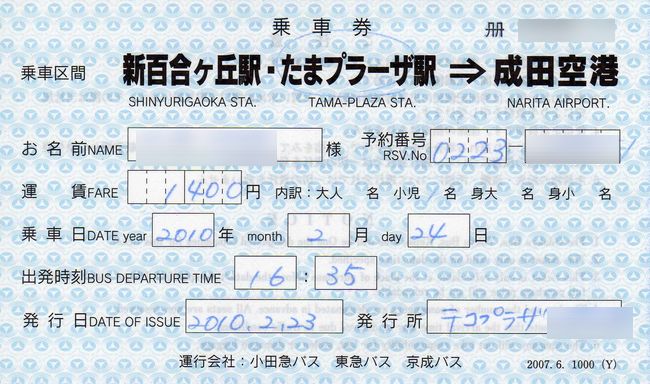 乗車券 冊
乗車区間 新百合ヶ丘駅・たまプラーザ駅 ⇒ 成田空港
SHINYURIGAOKA STA. TAMA-PLAZA STA. NARITA AIRPORT.
お名前NAME 様 予約番号 RSV.No 0223-
運賃FARE 1400円 内訳:大人 名 小児 1名 身大 名 身小 名
乗車日DATE year 2010年 month 2月 day 24日
出発時刻BUS DEPARTURE TIME 16:35
発行日DATE OF ISSUE 2010.2.23 発行所 テコプラザ
運行会社:小田急バス 東急バス 京成バス 2007.6. 1000 (Y)